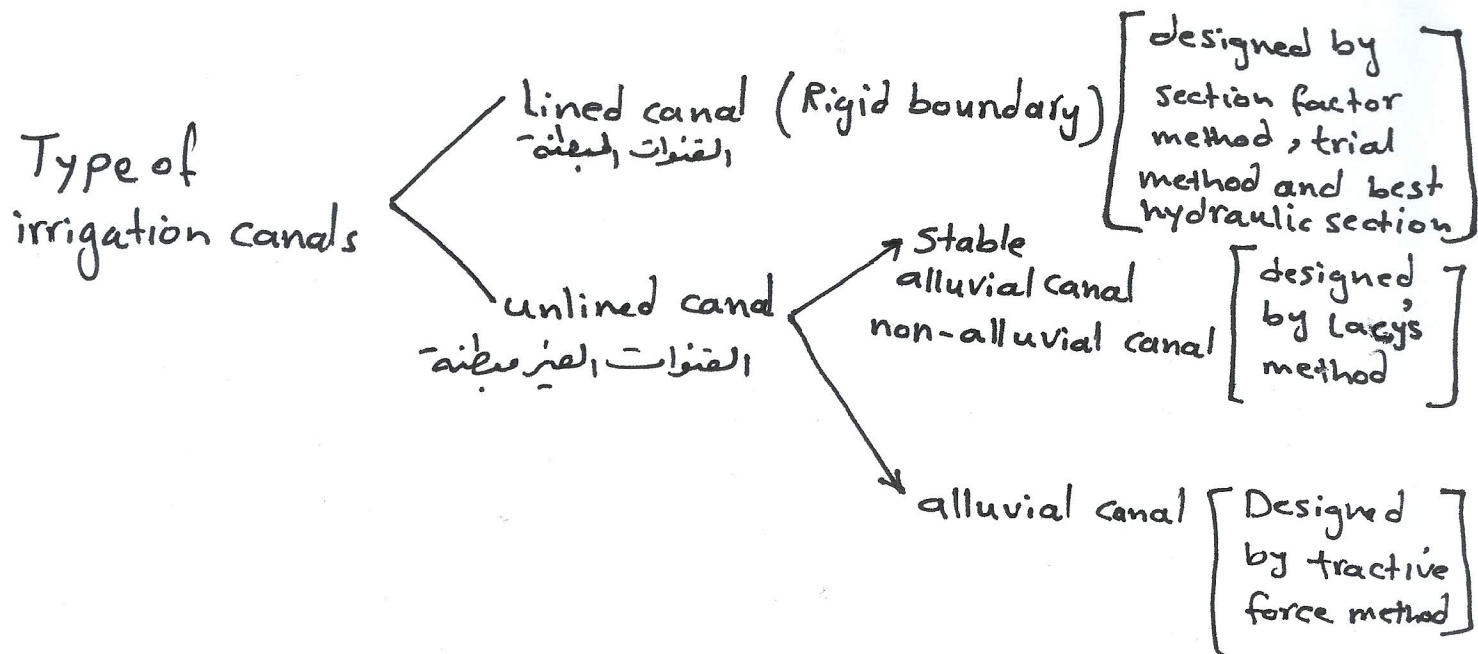 Type of
irrigation canals
lined canal (Rigid boundary)
القنوات المبطنة
designed by
section factor
method, trial
method and best
hydraulic section
unlined canal
القنوات الغير مبطنة
Stable
alluvial canal
non-alluvial canal
designed
by Lacey's
method
alluvial canal
Designed
by tractive
force method